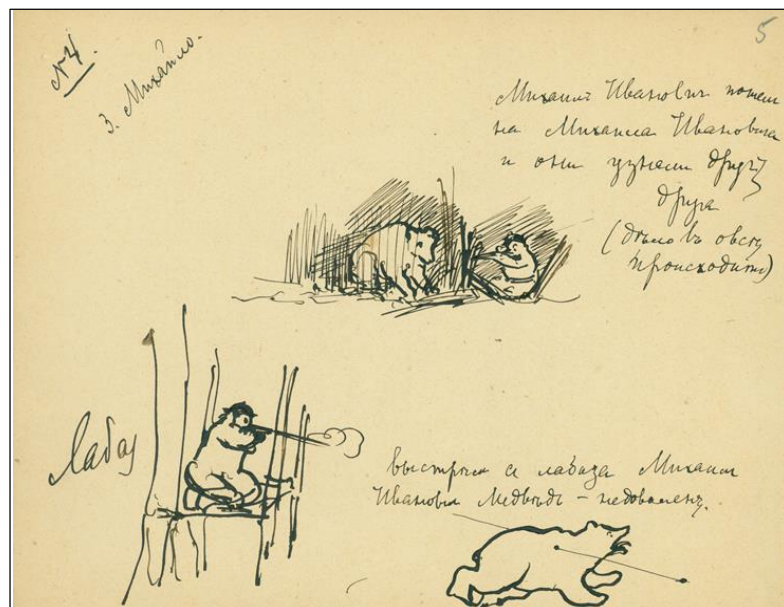 5
№4.
3. Михайло.
Михаилъ Ивановичъ пошелъ
на Михаила Ивановича
и они узнали другъ
друга
(дѣло въ овсѣ
происходитъ)
Лабаз
выстрѣлъ съ лабаза Михаилъ
Ивановичъ Медвѣдь – недоволенъ.